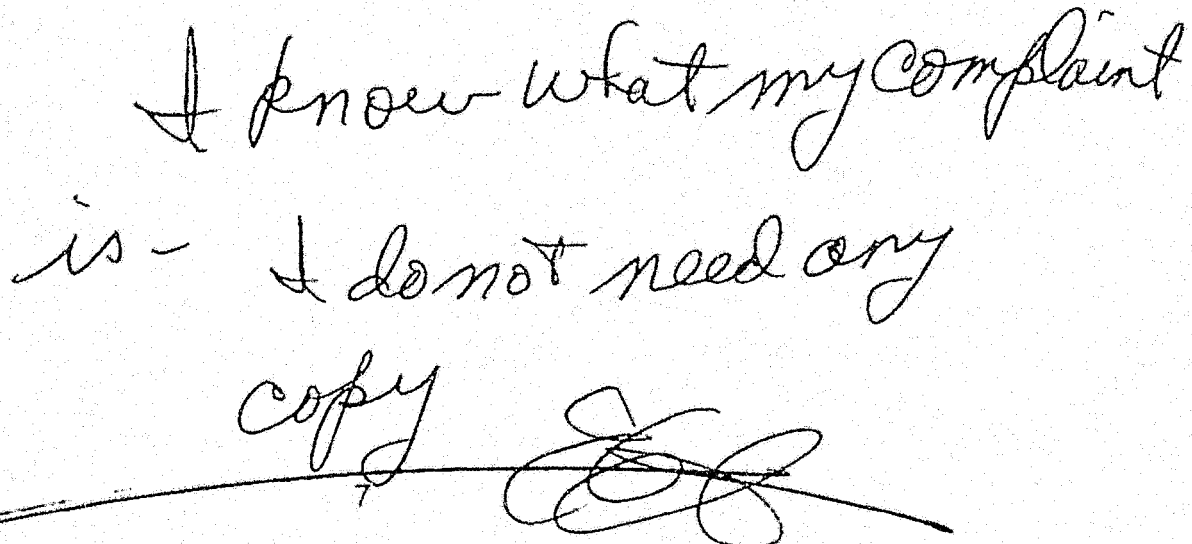 I know what my complaint
is - I do not need any
copy